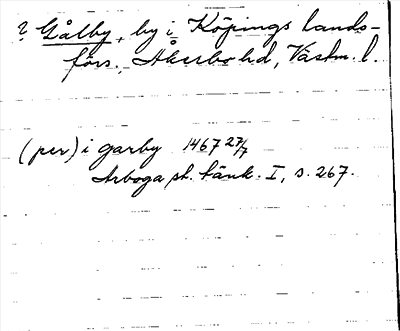 ? Gålby, by i Köpings lands-
förs., Åkerbo hd, Västm. l.
(per) i garby 1467 27/7
Arboga st. tänk. I, s. 267.